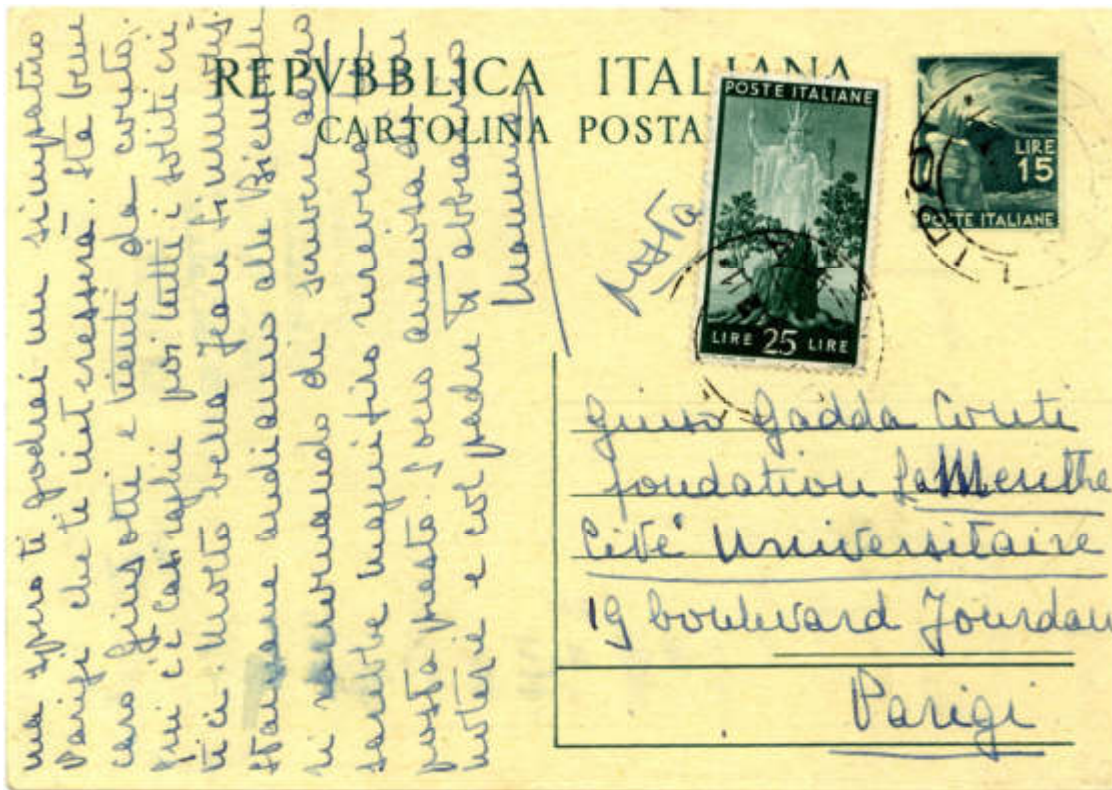 REPVBBLICA ITALIANA
CARTOLINA POSTA
POSTE ITALIANE
LIRE 25 LIRE
LIRE
15
POSTE ITALIANE
posta
Giuso Gadda Conti
fondation
Cité Universitaire
19 boulevard Jourdan
Parigi
ma spero ti godrai un simpatico
Parigi che ti interesserà. Sta bene
caro e tienti da conto.
Qui c'è poi tutti i soliti cri
tici. Molto bella Jean Simmons.
Stamane andiamo alla Biennale
di scrivere altro
sarebbe magnifico
posta presto. Sono ansiosa di tue
notizie e col padre ti abbraccio
Mamma